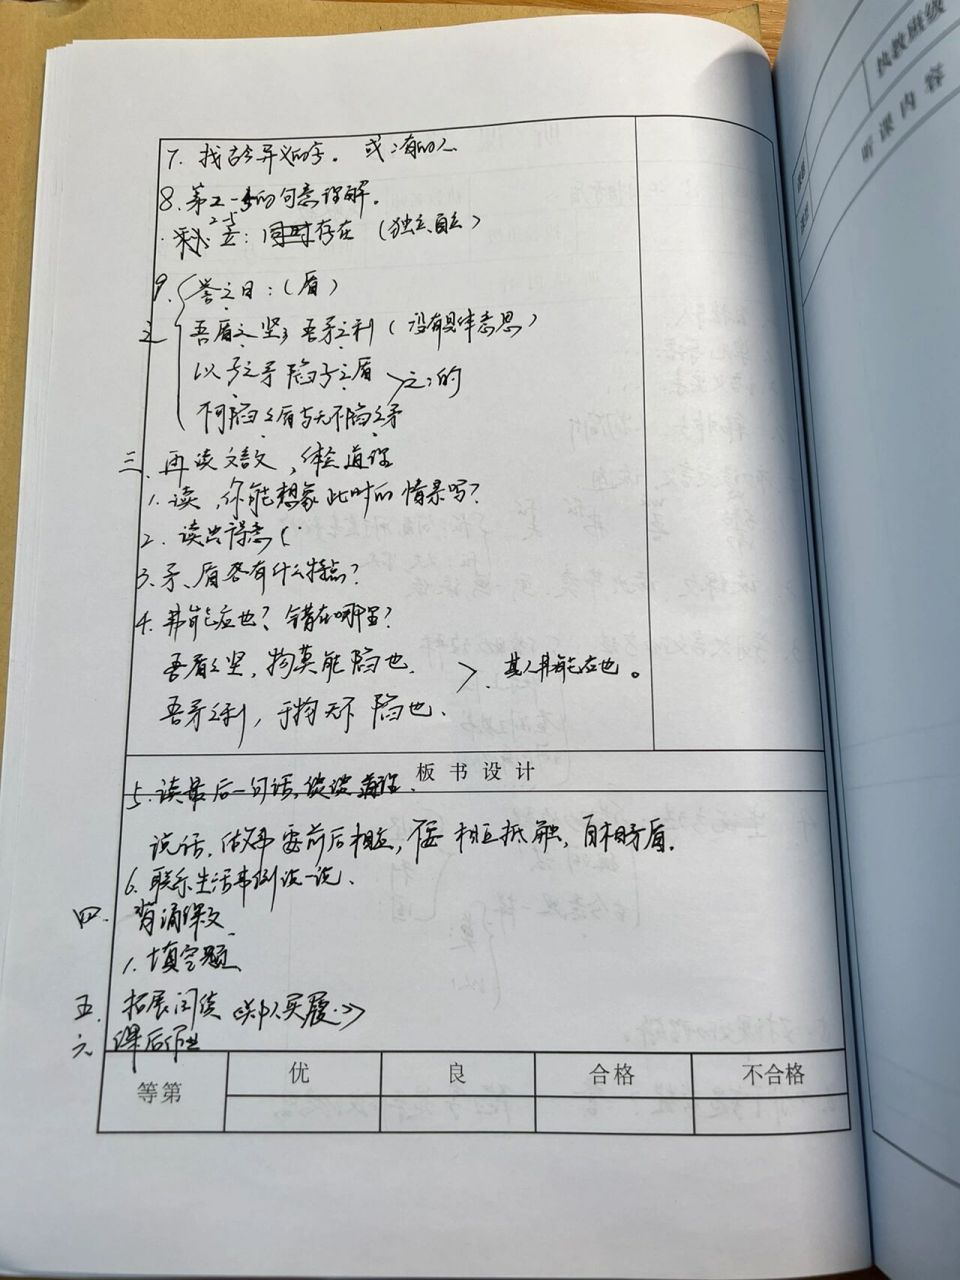 7. 找古今异义的字。或:有的人
8. 第2-5的句意理解。
2-5
立:同时存在（独立,自立）
9. 誉之曰:（盾）
之 吾盾之坚; 吾矛之利（没有具体意思）
以子之矛陷子之盾 之:的
不可陷之盾与无不陷之矛
三、再读文言文,体会道理
1. 读,你能想象此时的情景吗?
2. 读出得意（
3. 矛、盾各有什么特点?
4. 弗能应也? 错在哪里?
吾盾之坚,物莫能陷也. 其人弗能应也。
吾矛之利,于物无不陷也.
板书设计
5. 读最后一句话,谈谈道理.
说话、做事要前后相应,不要相互抵触,自相矛盾.
6. 联系生活事例说一说.
四. 背诵课文
1. 填空题
五. 拓展阅读《郑人买履》
六 课后作业
等第 优 良 合格 不合格
执教班级
听课内容